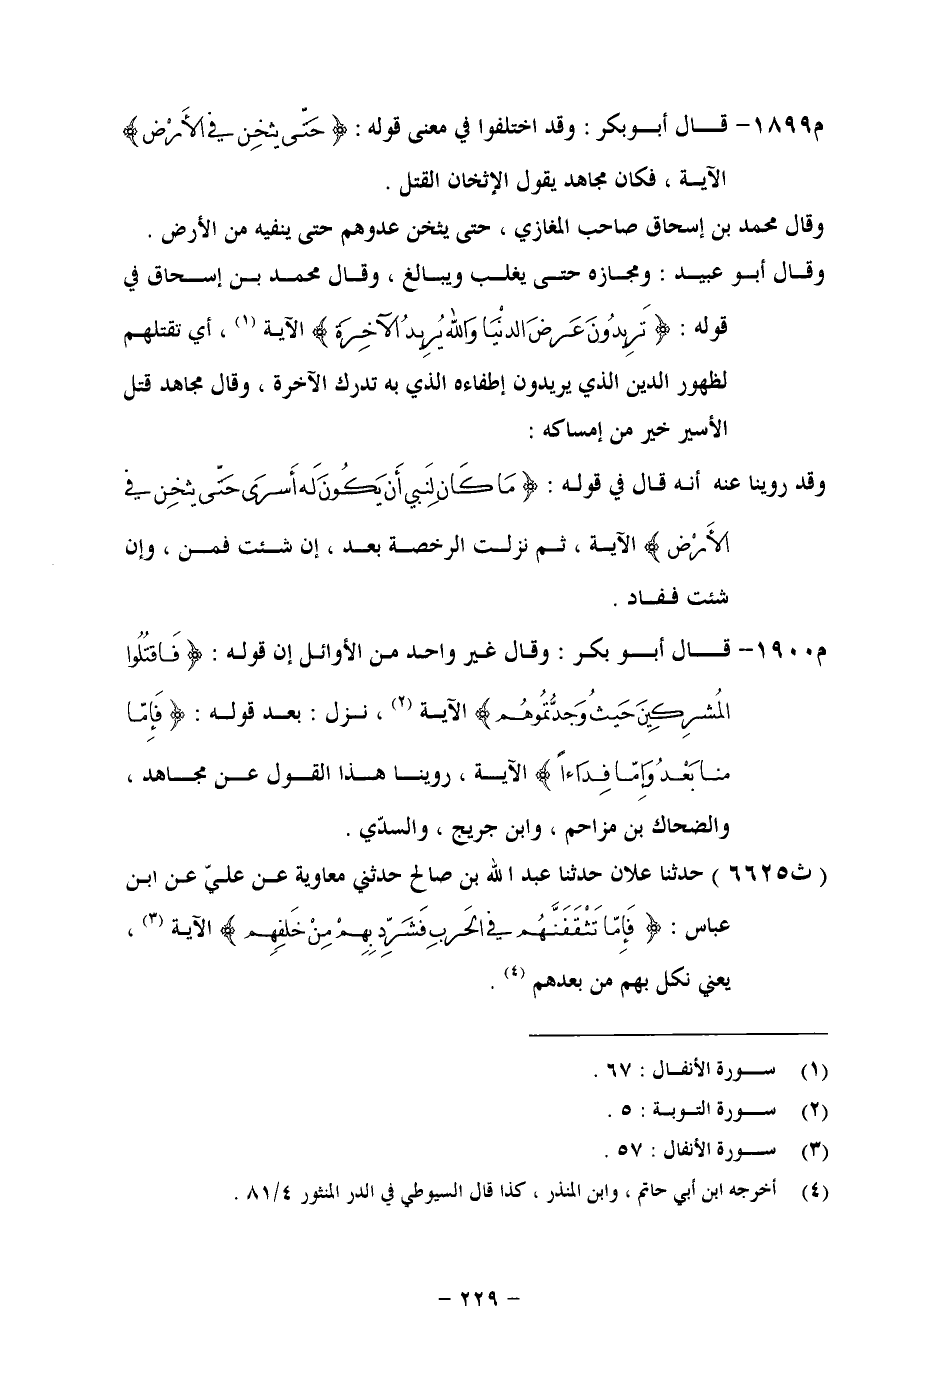 م١٨٩٩- قال أبوبكر : وقد اختلفوا في معنى قوله : ﴿ حَتَّى يثخِن في الأَرْض ﴾
الآية ، فكان مجاهد يقول الإثخان القتل .
وقال محمد بن إسحاق صاحب المغازي ، حتى يثخن عدوهم حتى ينفيه من الأرض .
وقال أبو عبيد : ومجازه حتى يغلب ويبالغ ، وقال محمد بن إسحاق في
قوله : ﴿ تَرِيدُونَ عَرضَ الدنْيَا وَاللهُ يُرِيدُ الآخِرَة ﴾ الآية (١) ، أي تقتلهم
لظهور الدين الذي يريدون إطفاءه الذي به تدرك الآخرة ، وقال مجاهد قتل
الأسير خير من إمساكه :
وقد روينا عنه أنه قال في قوله : ﴿ مَا كَان لِنَبي أَن يَكُونَ لَه أَسرَى حَتَّى يثخِن في
الأَرْض ﴾ الآية ، ثم نزلت الرخصة بعد ، إن شئت فمن ، وإن
شئت ففاد .
م١٩٠٠- قال أبو بكر : وقال غير واحد من الأوائل إن قوله : ﴿ فَاقتُلُوا
المُشرِكِينَ حَيثُ وَجدتُّمُوهُم ﴾ الآية (٢) ، نزل : بعد قوله : ﴿ فَإِمَّا
منا بَعْدُ وَإِمَّا فِدَاءاً ﴾ الآية ، روينا هذا القول عن مجاهد ،
والضحاك بن مزاحم ، وابن جريج ، والسدّي .
( ث٦٦٢٥ ) حدثنا علان حدثنا عبد الله بن صالح حدثني معاوية عن عليّ عن ابن
عباس : ﴿ فَإِمَّا تَثْقَفَنَّهُم في الحَربِ فَشَرِّد بِهِمْ مِنْ خَلفِهِم ﴾ الآية (٣) ،
يعني نكل بهم من بعدهم (٤) .
(١) سورة الأنفال : ٦٧ .
(٢) سورة التوبة : ٥ .
(٣) سورة الأنفال : ٥٧ .
(٤) أخرجه ابن أبي حاتم ، وابن المنذر ، كذا قال السيوطي في الدر المنثور ٨١/٤ .
- ٢٢٩ -